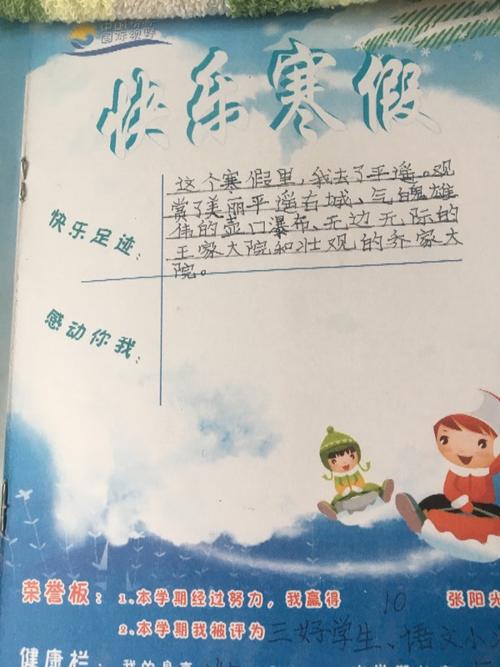 国际视野
快乐寒假
这个寒假里，我去了平遥。观
赏了美丽平遥古城、气魄雄
伟的壶口瀑布、无边无际的
王家大院和壮观的乔家大
院。
快乐足迹：
感动你我：
荣誉板：1.本学期经过努力，我赢得 10 张阳光
2.本学期我被评为三好学生、语文小
健康栏：我的身高